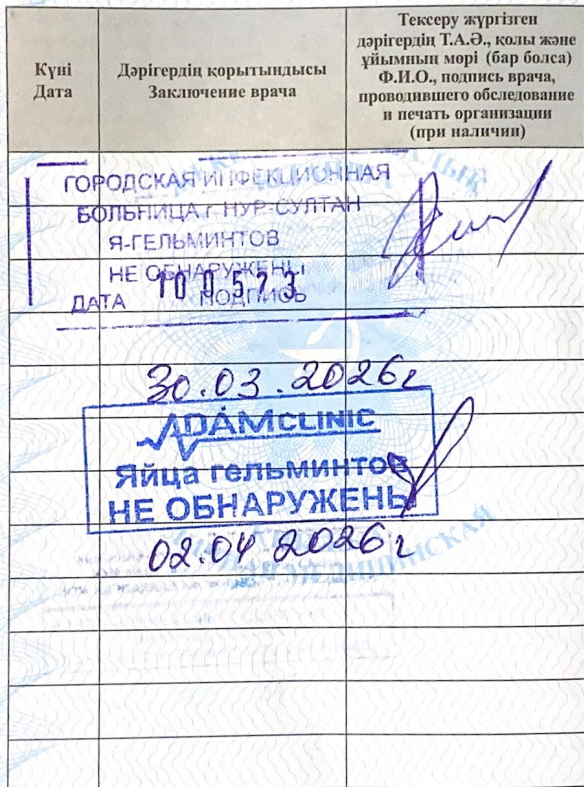 Күні
Дата
Дәрігердің қорытындысы
Заключение врача
Тексеру жүргізген
дәрігердің Т.А.Ә., қолы және
ұйымның мөрі (бар болса)
Ф.И.О., подпись врача,
проводившего обследование
и печать организации
(при наличии)
ГОРОДСКАЯ ИНФЕКЦИОННАЯ
БОЛЬНИЦА г. НУР-СУЛТАН
Я-ГЕЛЬМИНТОВ
НЕ ОБНАРУЖЕНЫ
ДАТА 100573 ПОДПИСЬ
30.03.2026г
ADAMCLINIC
Яйца гельминтов
НЕ ОБНАРУЖЕНЫ
02.04.2026г